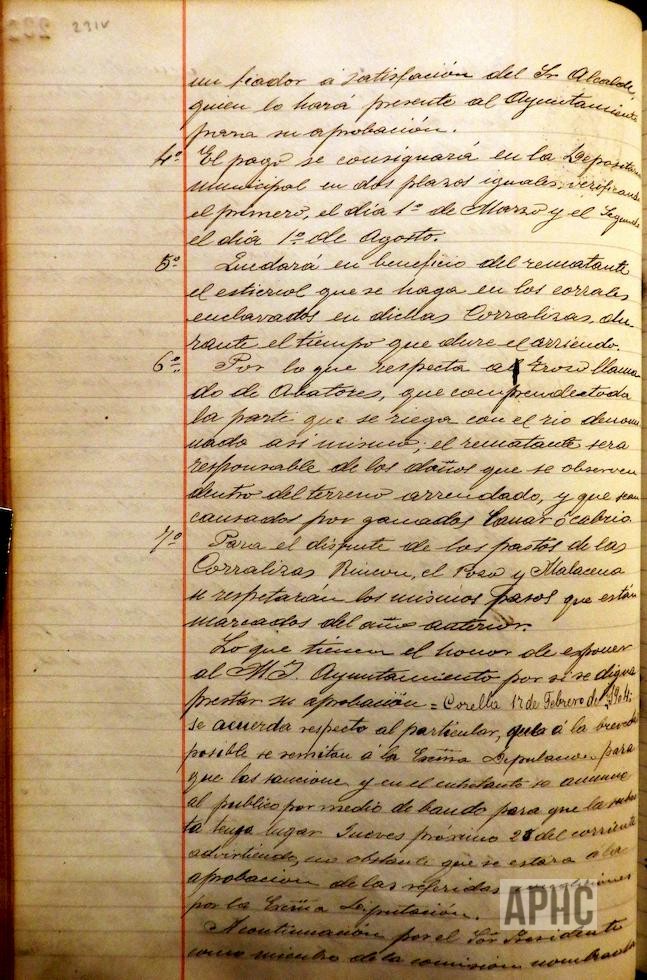 231v
un fiador á satisfacción del Sr. Alcalde,
quien lo hará presente al Ayuntamiento
para su aprobación.
4º El pago se consignará en la Depositaria
municipal en dos plazos iguales, verificando
el primero, el día 1º de Marzo y el Segundo
el día 1º de Agosto.
5º Quedará en beneficio del rematante
el estiercol que se haga en los corrales
enclavados en dichas Corralizas, du-
rante el tiempo que dure el arriendo.
6º Por lo que respecta al trozo llama
do de Abatores, que comprende toda
la parte que se riega con el rio denomi
nado asi mismo; el rematante será
responsable de los daños que se observen
dentro del terreno arrendado, y que sean
causados por ganados lanar ó cabrio
7º Para el disfrute de los pastos de las
Corralizas Rincon, el Poso y
se respetarán los mismos pasos que están
marcados del año anterior.
Lo que tienen el honor de exponer
al M. I. Ayuntamiento por si se digna
prestar su aprobación = Corella 17 de Febrero de 1904:
se acuerda respecto al particular, que á la brevedad
posible se remitan á la Excma Diputacion para
que las sancione y en el entretanto se anuncie
al publico por medio de bando para que la subas
ta tenga lugar Jueves próximo del corriente
advirtiendo, no obstante que se estara a la
aprobacion de las referidas condiciones
por la Excma Diputación.
A continuación por el Sor Presidente
como miembro de la comision nombrada
APHC